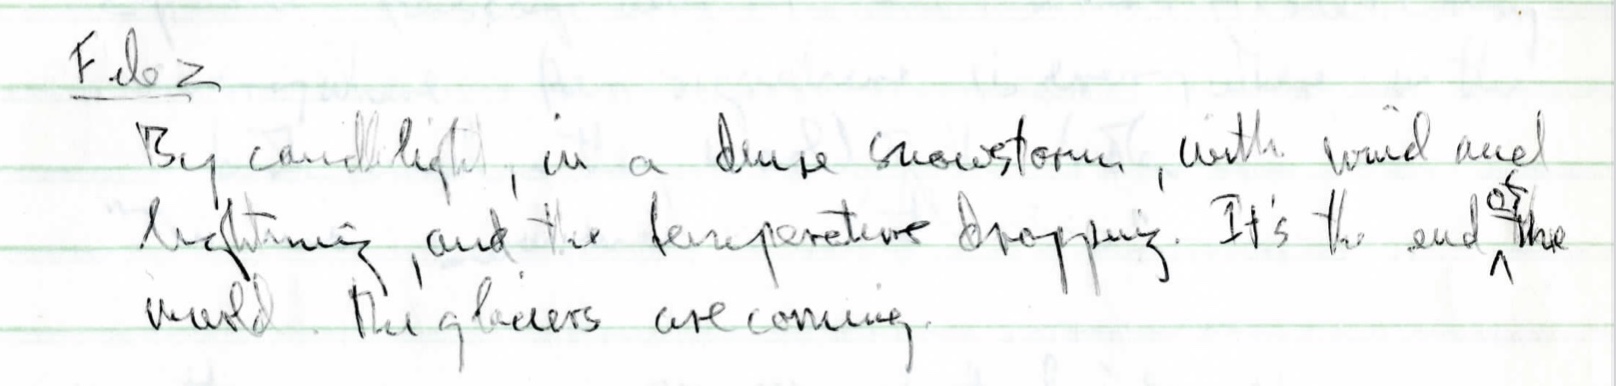 Feb 2
By candlelight, in a dense snowstorm, with wind and
lightning, and the temperature dropping. It's the end of the
world. The glaciers are coming.